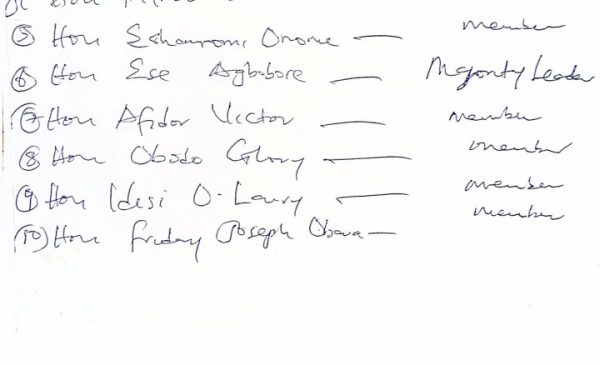 ⑤ Hon Onome — member
⑥ Hon Ese Agbabore — Majority Leader
⑦ Hon Afidor Victor — member
⑧ Hon Obodo Glory — member
⑨ Hon Idesi O. Laury — member
⑩ Hon Friday Joseph — member